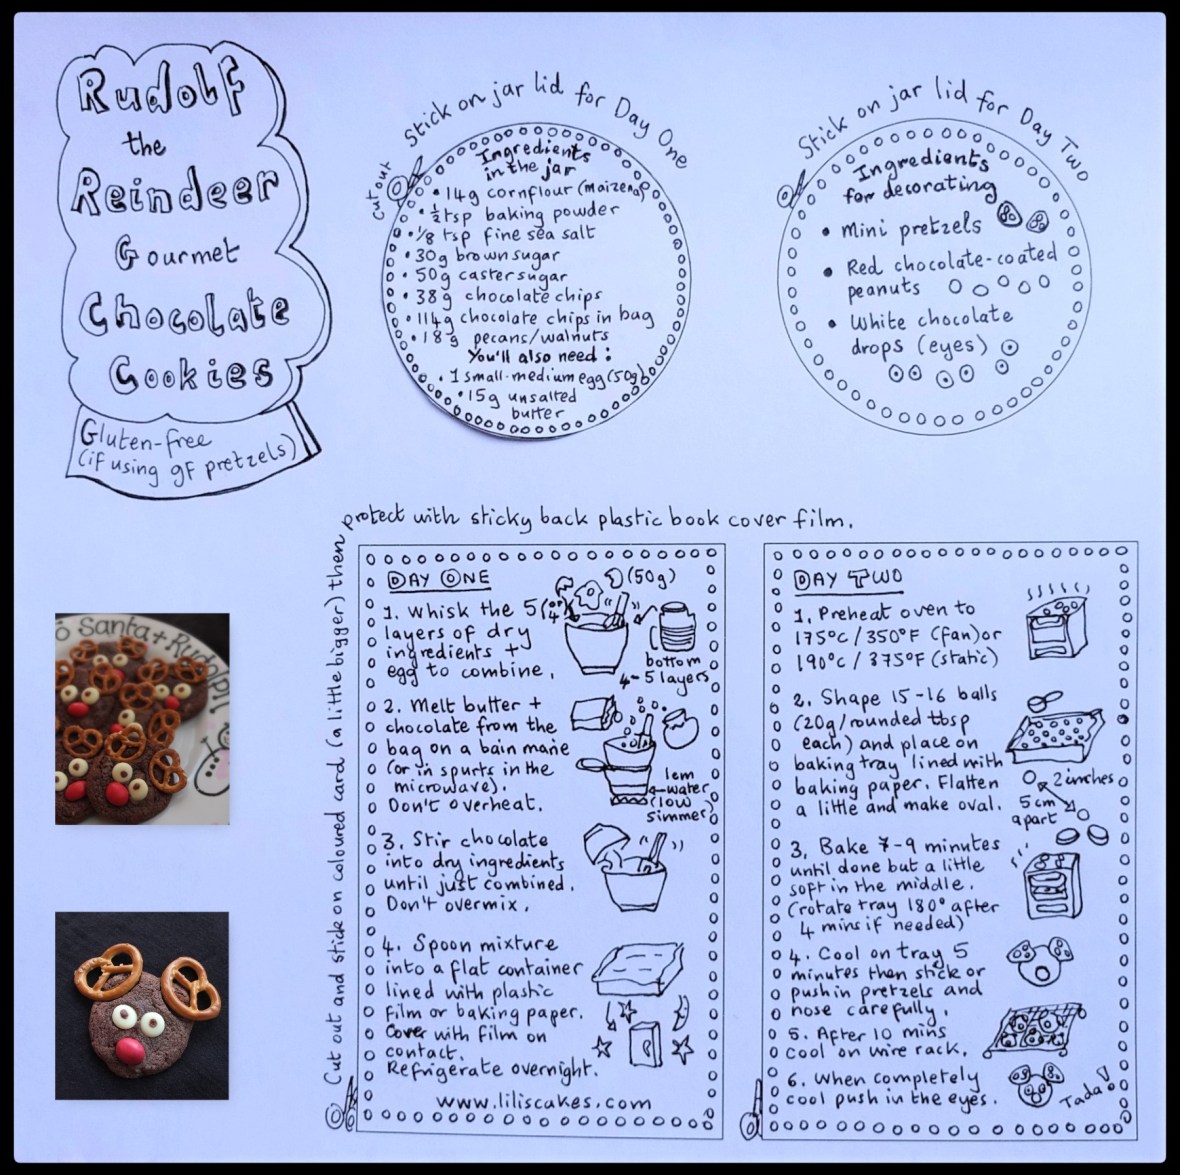 Rudolf
the
Reindeer
Gourmet
Chocolate
Cookies
Gluten-free
(if using gf pretzels)
Stick on jar lid for Day One
cut out
Ingredients
in the jar
• 14g cornflour (maizena)
• ½ tsp baking powder
• 1/8 tsp fine sea salt
• 30g brown sugar
• 50g caster sugar
• 38g chocolate chips
• 114g chocolate chips in bag
• 18g pecans/walnuts
You'll also need:
• 1 small-medium egg (50g)
• 15g unsalted
butter
Stick on jar lid for Day Two
Ingredients
for decorating
• Mini pretzels
• Red chocolate-coated
peanuts
• White chocolate
drops (eyes)
Cut out and stick on coloured card (a little bigger) then protect with sticky back plastic book cover film.
DAY ONE
(50g)
1. Whisk the 5 (or 4)
layers of dry
ingredients +
egg to combine.
bottom
4-5 layers
2. Melt butter +
chocolate from the
bag on a bain marie
(or in spurts in the
microwave).
Don't overheat.
1cm
water
(low
simmer)
3. Stir chocolate
into dry ingredients
until just combined.
Don't overmix.
4. Spoon mixture
into a flat container
lined with plastic
film or baking paper.
Cover with film on
contact.
Refrigerate overnight.
www.liliscakes.com
DAY TWO
1. Preheat oven to
175°c/350°F (fan) or
190°c/375°F (static)
2. Shape 15-16 balls
(20g/rounded tbsp
each) and place on
baking tray lined with
baking paper. Flatten
a little and make oval.
2 inches
5cm
apart
3. Bake 7-9 minutes
until done but a little
soft in the middle.
(rotate tray 180° after
4 mins if needed)
4. Cool on tray 5
minutes then stick or
push in pretzels and
nose carefully.
5. After 10 mins
cool on wire rack.
6. When completely
cool push in the eyes.
Tada!
o Santa + Rudolph